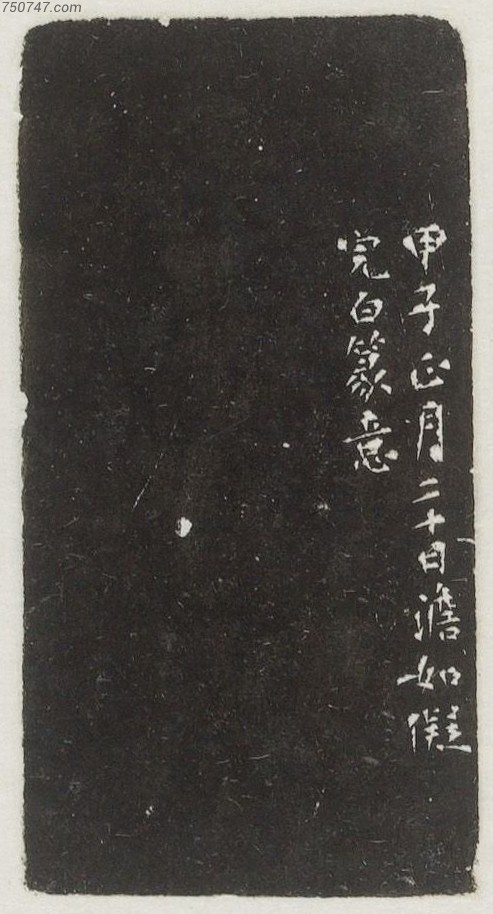 750747.com
甲子正月二十日澹如儗
完白篆意